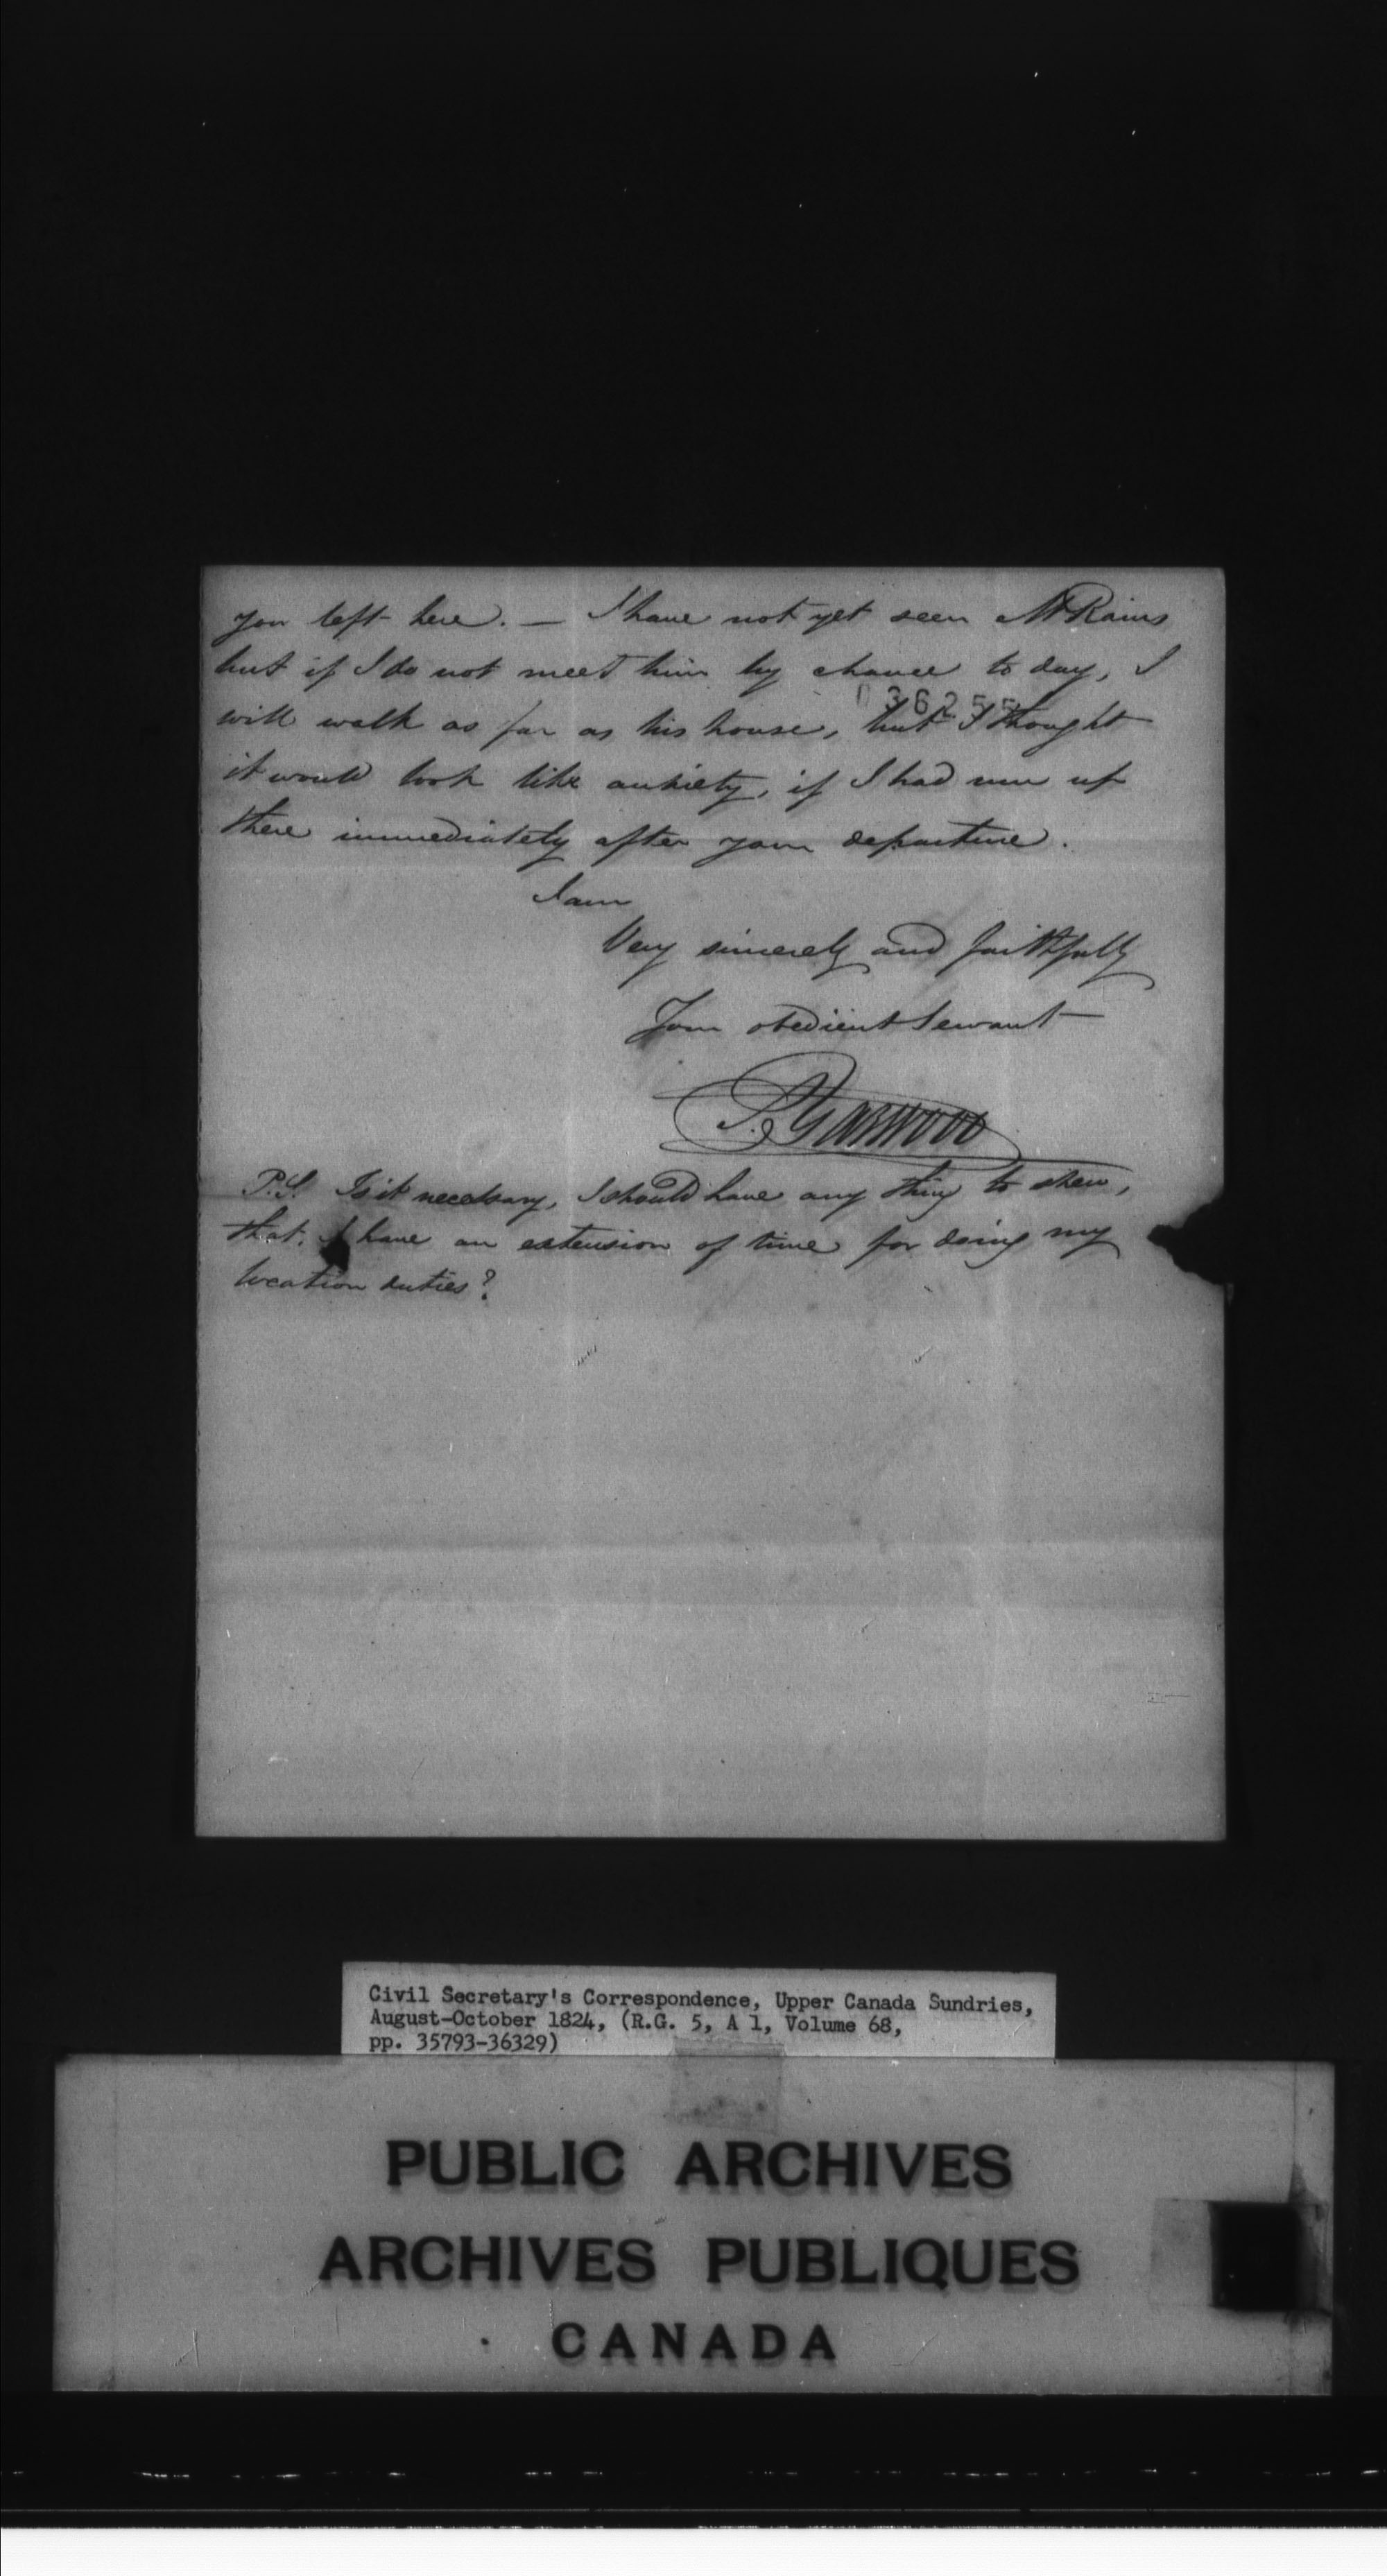 you left here. — I have not yet seen Mr Rains
but if I do not meet him by chance to day, I
036255
will walk as far as his house, but I thought
it would look like anxiety, if I had run up
there immediately after your departure.
I am
Very sincerely and faithfully
Your obedient Servant
P.S. Is it necessary, I should have any thing to shew,
that I have an extension of time for doing my
location duties?
Civil Secretary's Correspondence, Upper Canada Sundries,
August-October 1824, (R.G. 5, A 1, Volume 68,
pp. 35793-36329)
PUBLIC ARCHIVES
ARCHIVES PUBLIQUES
CANADA